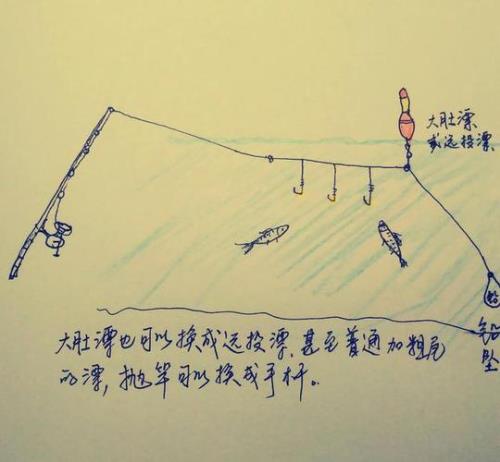 大肚漂
或远投漂
铅
坠
大肚漂也可以换成远投漂.甚至普通加粗尾
的漂,抛竿可以换成手杆。